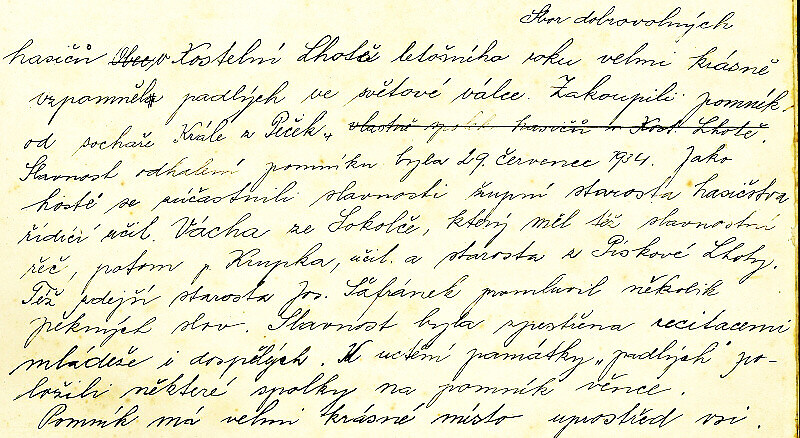 Sbor dobrovolných
hasičů Obec v Kostelní Lhotě letošního roku velmi krásně
vzpomněl padlých ve světové válce. Zakoupili pomník
od sochaře Krále z Peček, vlastně hasičů v Kost. Lhotě.
Slavnost odhalení pomníku byla 29. červenec 1934. Jako
hosté se zúčastnili slavnosti župní starosta hasičstva
řídící učil. Vácha ze Sokolče, který měl též slavnostní
řeč, potom p. Krupka, učil. a starosta z Pískové Lhoty.
Též zdejší starosta Jos. Šáfránek promluvil několik
pěkných slov. Slavnost byla zpestřena recitacemi
mládeže i dospělých. K uctění památky „padlých" po-
ložili některé spolky na pomník věnce.
Pomník má velmi krásné místo uprostřed vsi.